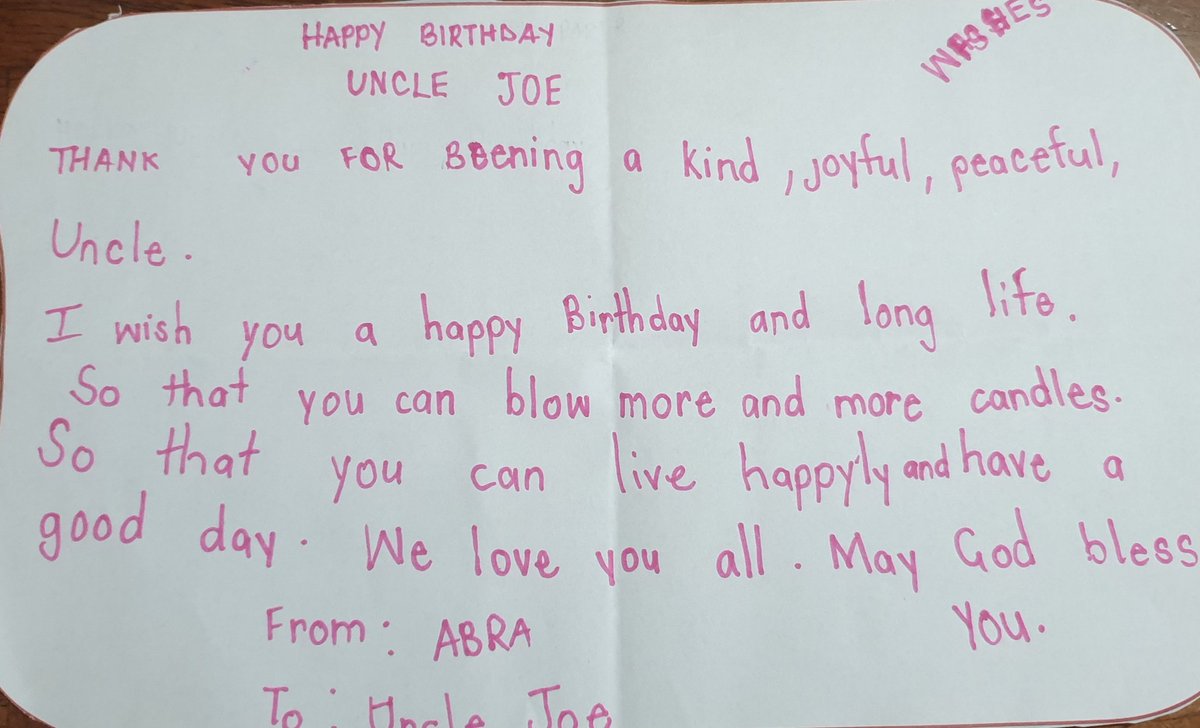 HAPPY BIRTHDAY
WISHES
UNCLE JOE
THANK YOU FOR BEening a kind, joyful, peaceful,
Uncle.
I wish you a happy Birthday and long life.
So that you can blow more and more candles.
So that you can live happyly and have a
good day. We love you all. May God bless
you.
From: ABRA
To: Uncle Joe